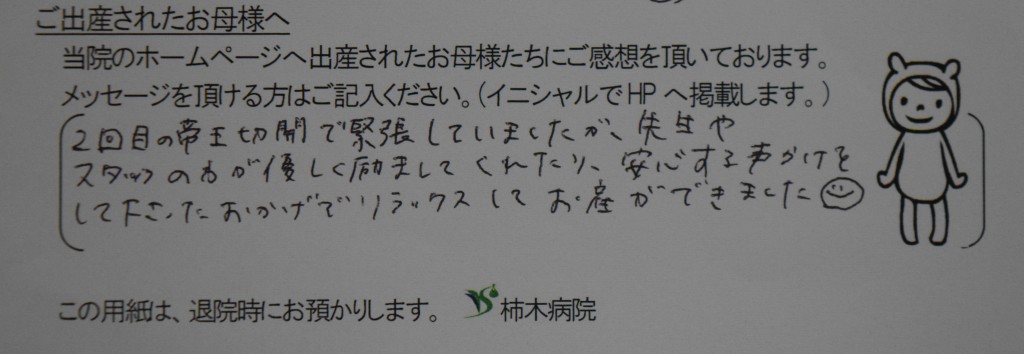 ご出産されたお母様へ
当院のホームページへ出産されたお母様たちにご感想を頂いております。
メッセージを頂ける方はご記入ください。(イニシャルでHPへ掲載します。)
2回目の帝王切開で緊張していましたが、先生や
スタッフの方が優しく励ましてくれたり、安心する声かけを
して下さったおかげでリラックスしてお産ができました
この用紙は、退院時にお預かりします。 柿木病院